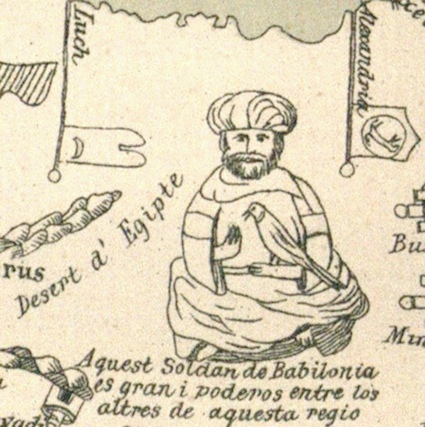 Luch
Alexandria
Desert d' Egipte
rus
Bu
Min
Aquest Soldan de Babilonia
es gran i poderos entre los
altres de aquesta regio